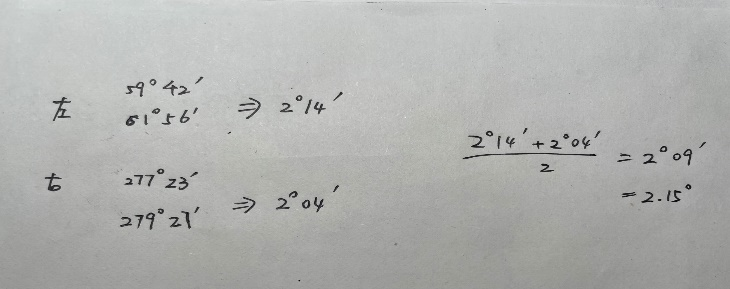 左 59°42′
61°56′ ⇒ 2°14′
右 277°23′
279°27′ ⇒ 2°04′
(2°14′+2°04′)/2 = 2°09′
= 2.15°